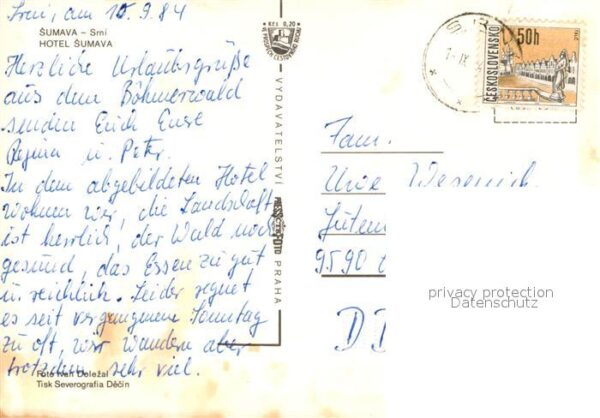 Srní, am 10.9.84
ŠUMAVA – Srní
HOTEL ŠUMAVA
Herzliche Urlaubsgrüße
aus dem Böhmerwald
senden Euch Eure
Regina u. Peter.
In dem abgebildeten Hotel
wohnen wir, die Landschaft
ist herrlich, der Wald noch
gesund, das Essen zu gut
u. reichlich. Leider regnet
es seit vergangenem Sonntag
zu oft, wir wandern aber
trotzdem sehr viel.
Foto Ivan Doležal
Tisk Severografia Děčín
Kčs 0,20
VYDAVATELSTVÍ
PRESSFOTO
PRAHA
ČESKOSLOVENSKO
50h
Fam.
Uwe Wesenick
Güten
9590
DD
privacy protection
Datenschutz